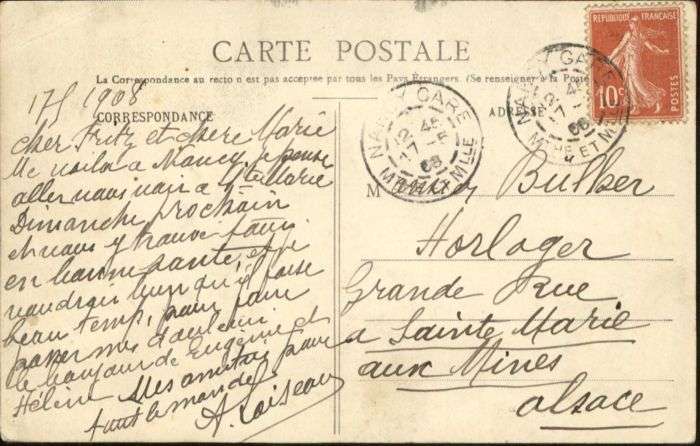 CARTE POSTALE
La Correspondance au recto n est pas acceptée par tous les Pays Étrangers. (Se renseigner à la Poste
CORRESPONDANCE
ADRESSE
RÉPUBLIQUE FRANÇAISE
10c
POSTES
NANCY GARE
12 45
17 -5
08
NANCY GARE
17 -5
08
17/5 1908
Cher Fritz et chere Marie
Me voila a Nancy, je pense
aller vous voir a Ste Marie
Dimanche prochain
et vous y trouve tous
en bonne santé, et je
voudrais bien qu'il fasse
beau temp, pour faire
passer mes douleur.
le bonjour de Eugenie et
Hélene Mes amities pour
tout le monde
A. Loiseau
M Bulber
Horloger
Grande Rue
a Sainte Marie
aux Mines
alsace